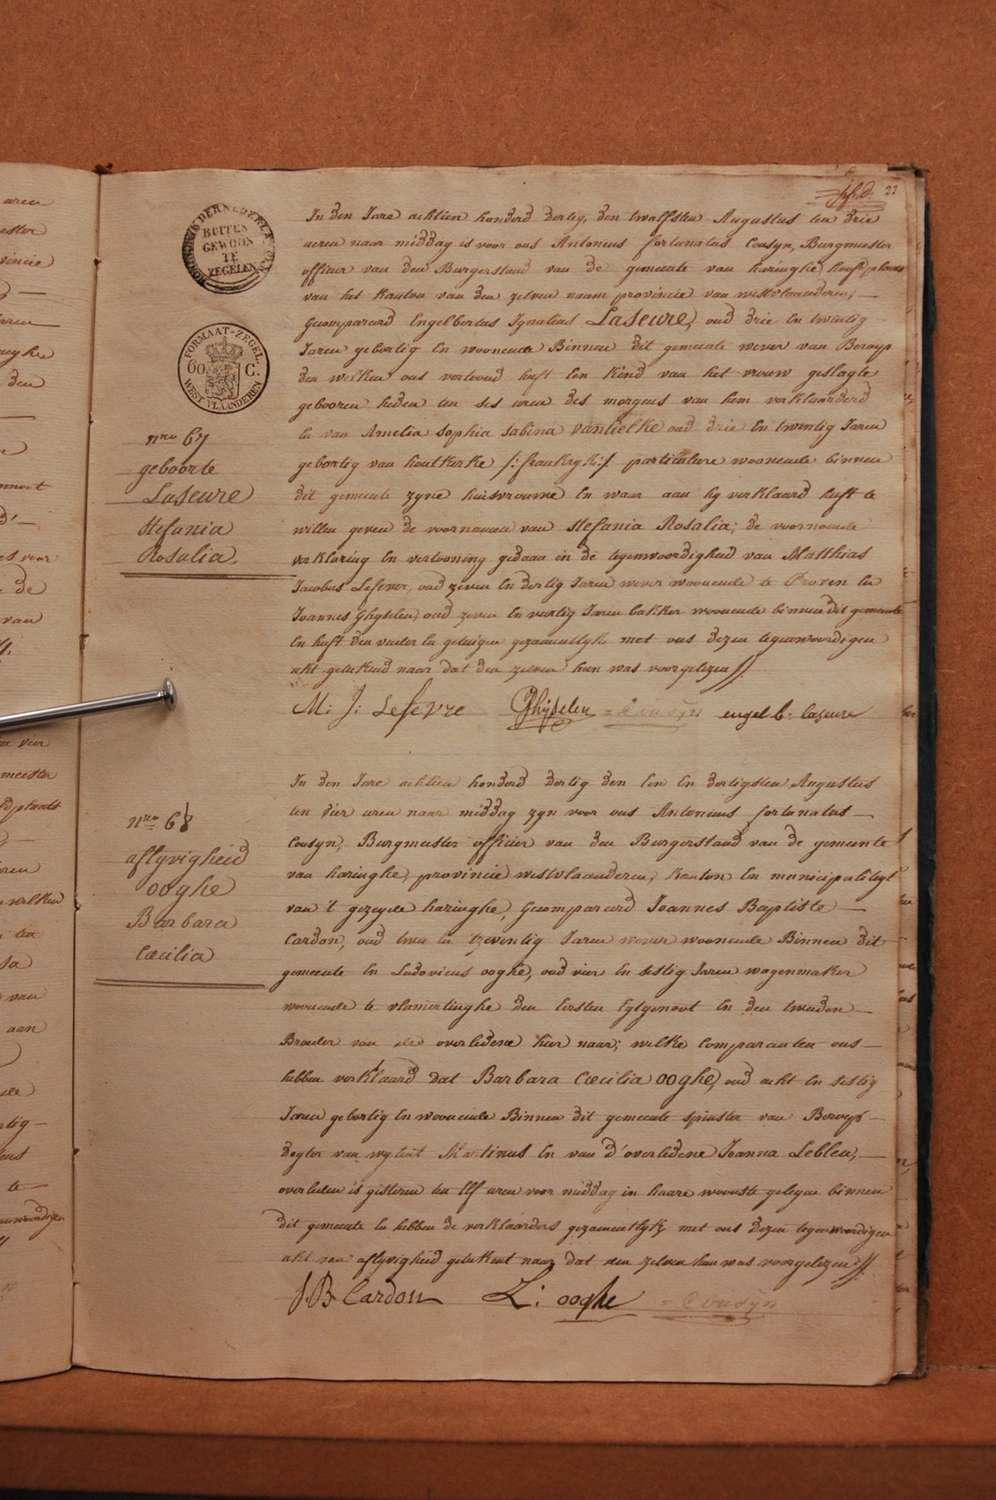 22
KONINGRYK DER NEDERLANDEN
BUITEN
GEWOON
TE
ZEGELEN
FORMAAT-ZEGEL.
60 C.
WEST VLAANDEREN
nro 67
geboorte
Laseure
Stefania
Rosalia.
In den Jare achtien honderd dertig, den twalfsten Augustus ten drie
uren naar middag is voor ons Antonius fortunatus Cousyn, Burgmeester
officier van den Burgerstand van de gemeente van haringhe hooft plaats
van het kanton van den zelven naam provincie van westvlaanderen;
Gecompareerd Engelbertus Ignatius Laseure, oud drie En twintig
Jaren geboortig En woonende Binnen dit gemeente wever van Beroep
den welken ons vertoond heeft Een kind van het vrouw geslagte
gebooren heden ten ses uren des morgens van hem verklaarderd
En van Amelia Sophia Sabina vanlielke oud drie En twintig Jaren
gebortig van houtkerke /: frankryk :/ particuliere woonende binnen
dit gemeente zyne huisvrouwe En waar aan hy verklaard heeft te
willen geven de voornaamen van Stefania Rosalia; de voornoemde
verklaring En vertooning gedaan in de tegenwoordigheid van Matthias
Jacobus Lefever, oud zeven En dertig Jaren wever woonende te Proven En
Joannes Ghyselen, oud zeven En veertig Jaren bakker woonende binnen dit gemeente
En heeft den vader En getuigen gezamentlyk met ons dezen tegenwoordigen
akt geteekend naar dat den zelven hun was voorgelezen //.
M: J: Lefevre Ghyselen = Cousyn engel b. laseure
nro 68
aflyvigheid
ooghe
Barbara
Cœcilia
In den Jare achtien honderd dertig den Een En dertigsten Augustus
ten vier uren naar middag zyn voor ons Antonius fortunatus
Cousyn, Burgmeester officier van den Burgerstand van de gemeente
van haringhe, provincie westvlaanderen, kanton En municipaliteyt
van 't gezeyde haringhe, Gecompareerd Joannes Baptiste
Cardon, oud twee En tzeventig Jaren wever woonende Binnen dit
gemeente En Ludovicus ooghe, oud vier En sestig Jaren wagenmaker
woonende te vlamertinghe den Eersten Eygenoot En den tweeden
Broeder van de overledene hier naar; welke comparanten ons
hebben verklaard dat Barbara Cœcilia ooghe, oud acht En sestig
Jaren geboortig En woonende Binnen dit gemeente spinster van Beroep
dogter van wylent Martinus En van d'overledene Joanna Lebleu,
overleden is gisteren ten Elf uren voor middag in haare wooste gelegen binnen
dit gemeente En hebben de verklaarders gezamentlyk met ons dezen tegenwoordigen
akt van aflyvigheid geteekent naar dat den zelven hun was voorgelezen //.
J.B Cardon L: ooghe = Cousyn